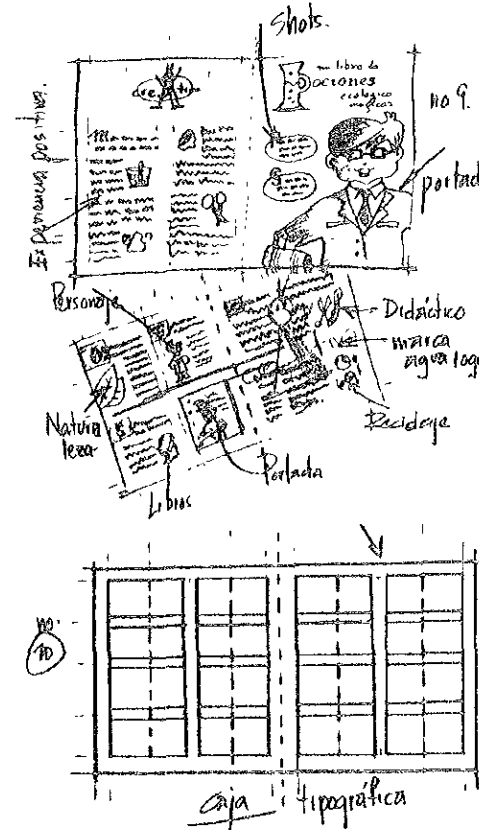 Shots.
creativo
un libro de
acciones
ecologico
magicas
no 9.
portad
Personaje
Didáctico
marca
agua logo
Reciclaje
Natura
leza
Portada
Libros
no.
10
Caja tipográfica